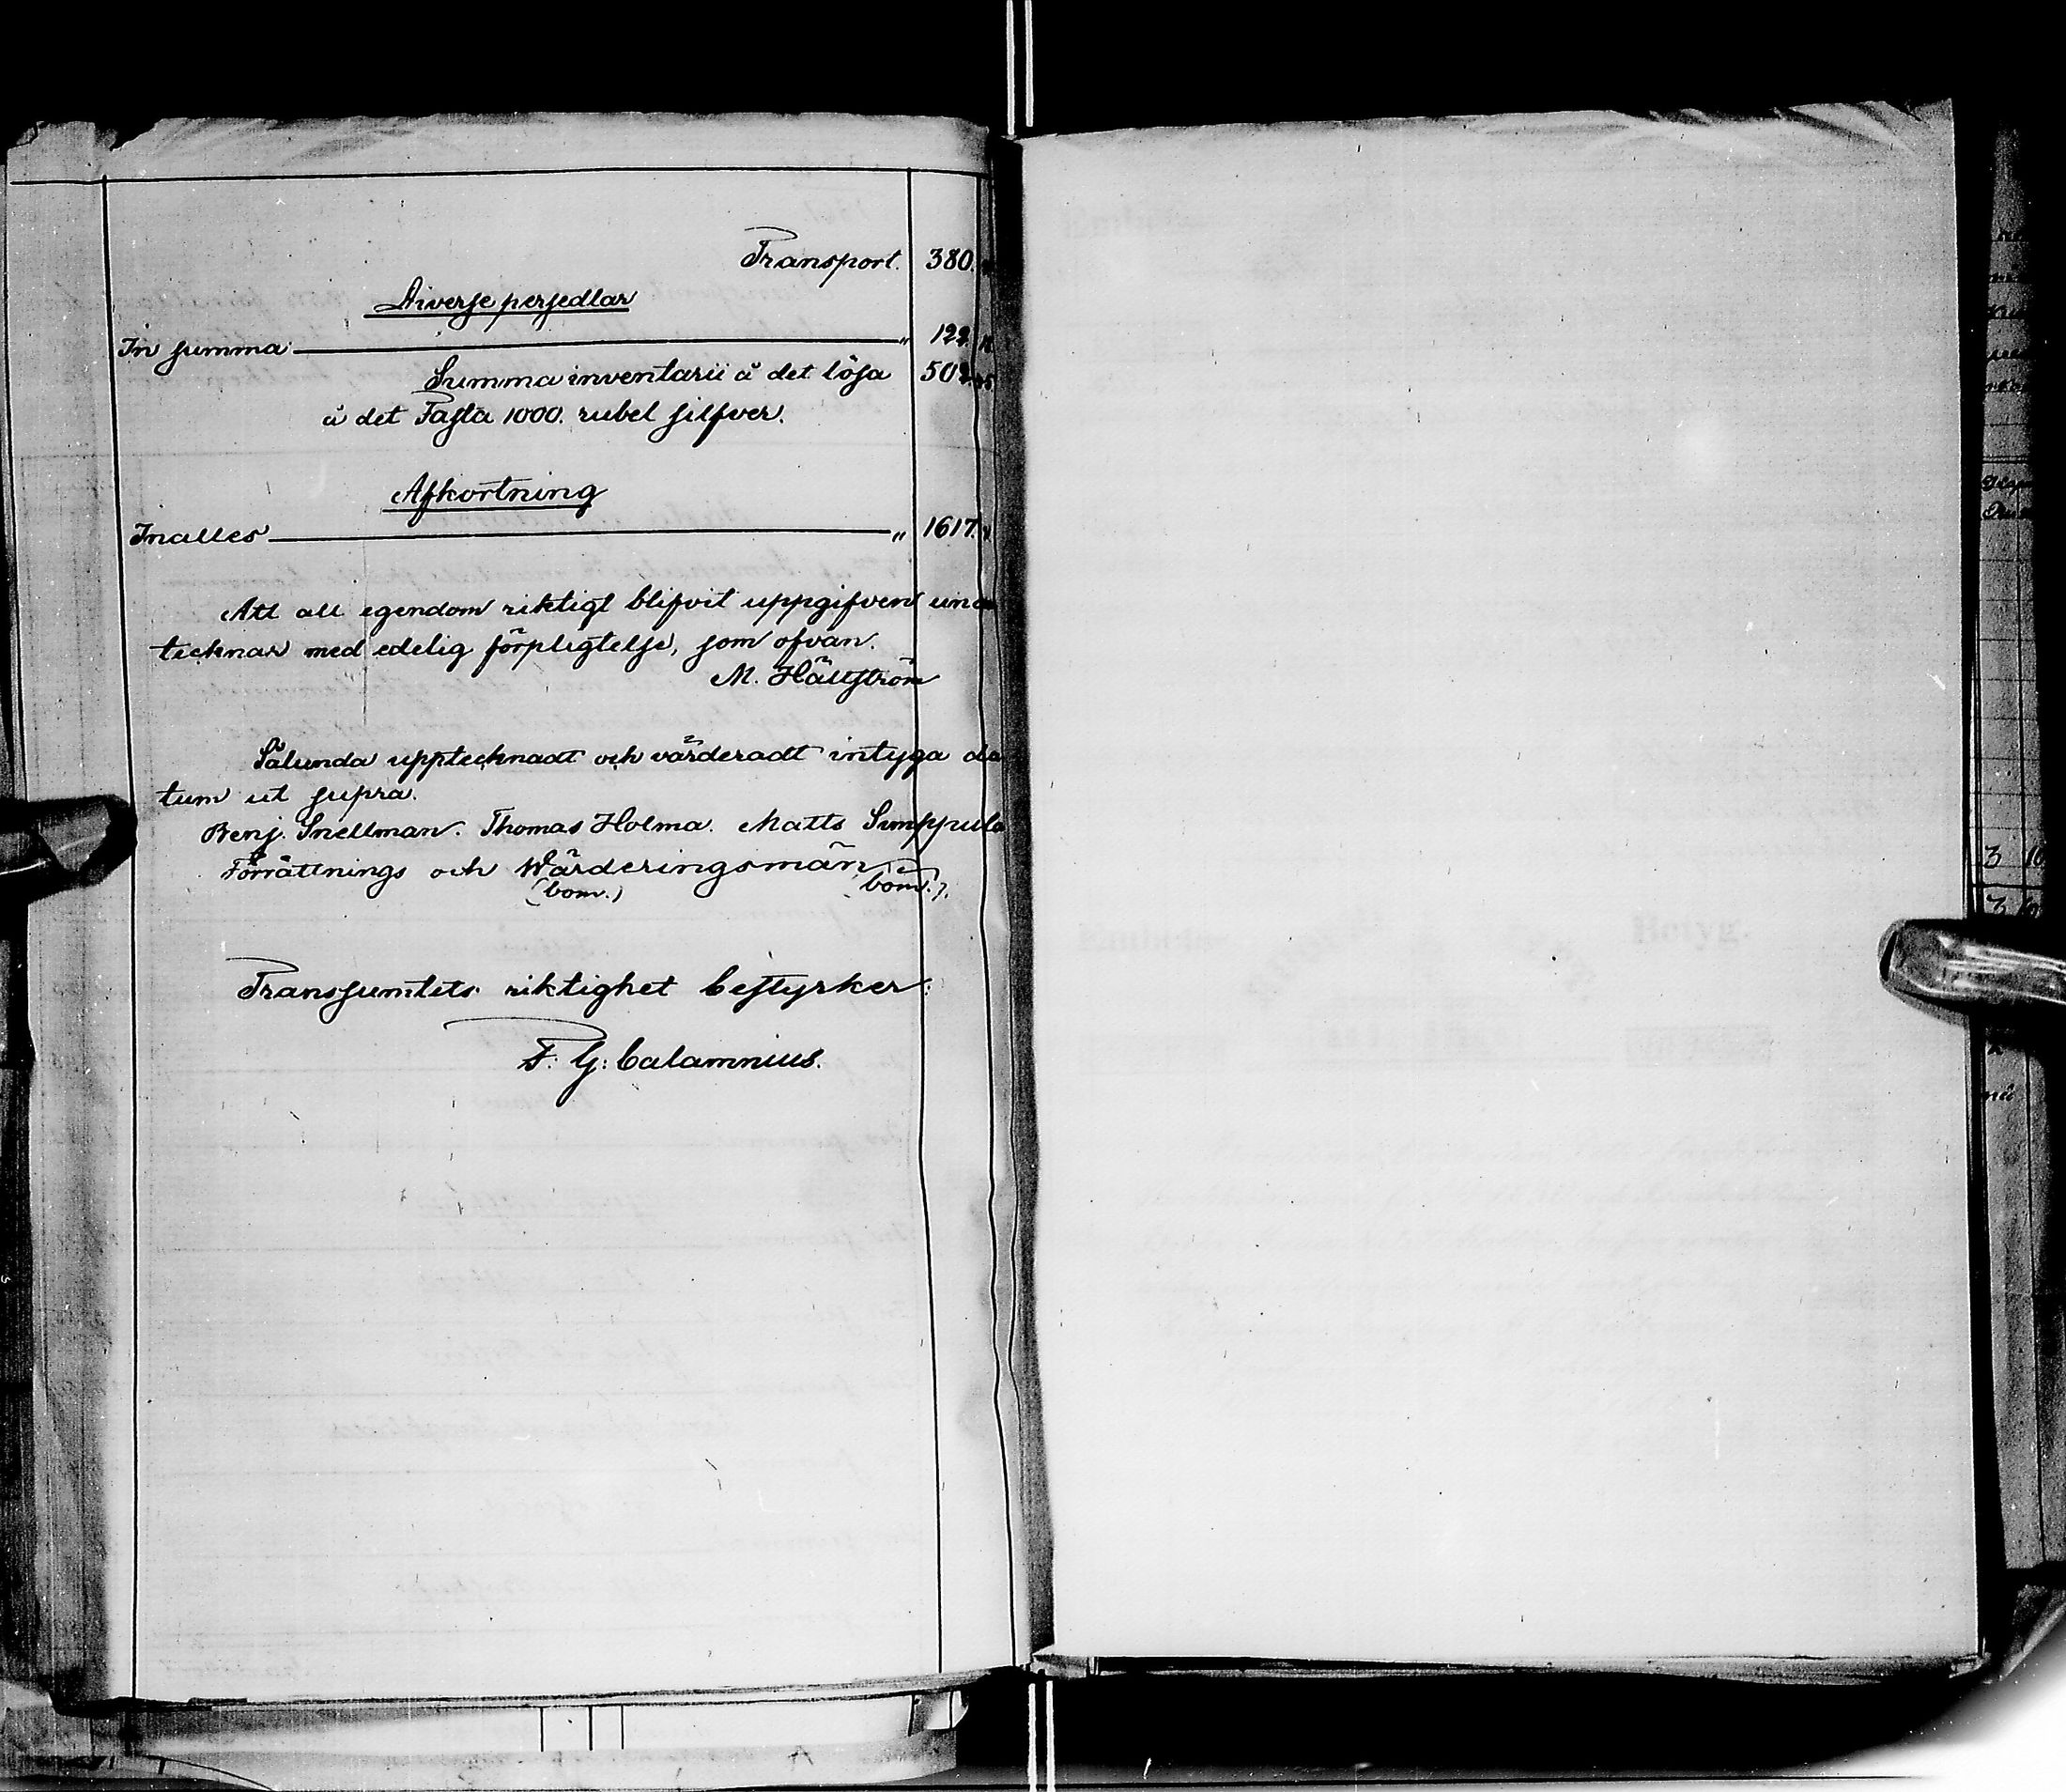 Transport. 380.
Diverse persedlar
In summa " 122.
Summa inventarii å det lösa 502.
å det Fasta 1000. rubel silfver.
Afkortning
Inalles " 1617.
Att all egendom riktigt blifvit uppgifven un
tecknas med edelig förpligtelse, som ofvan.
M. Hällström
Sålunda upptecknadt och värderadt intyga da
tum ut supra.
Benj. Snellman. Thomas Holma. Matts Sumppula
Förrättnings och Wärderingsmän
(bom.) bom.).
Transsumtets riktighet bestyrker:
F. G: Calamnius.
Betyg.